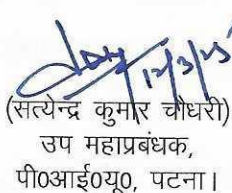 12/3/25
(सत्येन्द्र कुमार चौधरी)
उप महाप्रबंधक,
पी0आई0यू0, पटना।